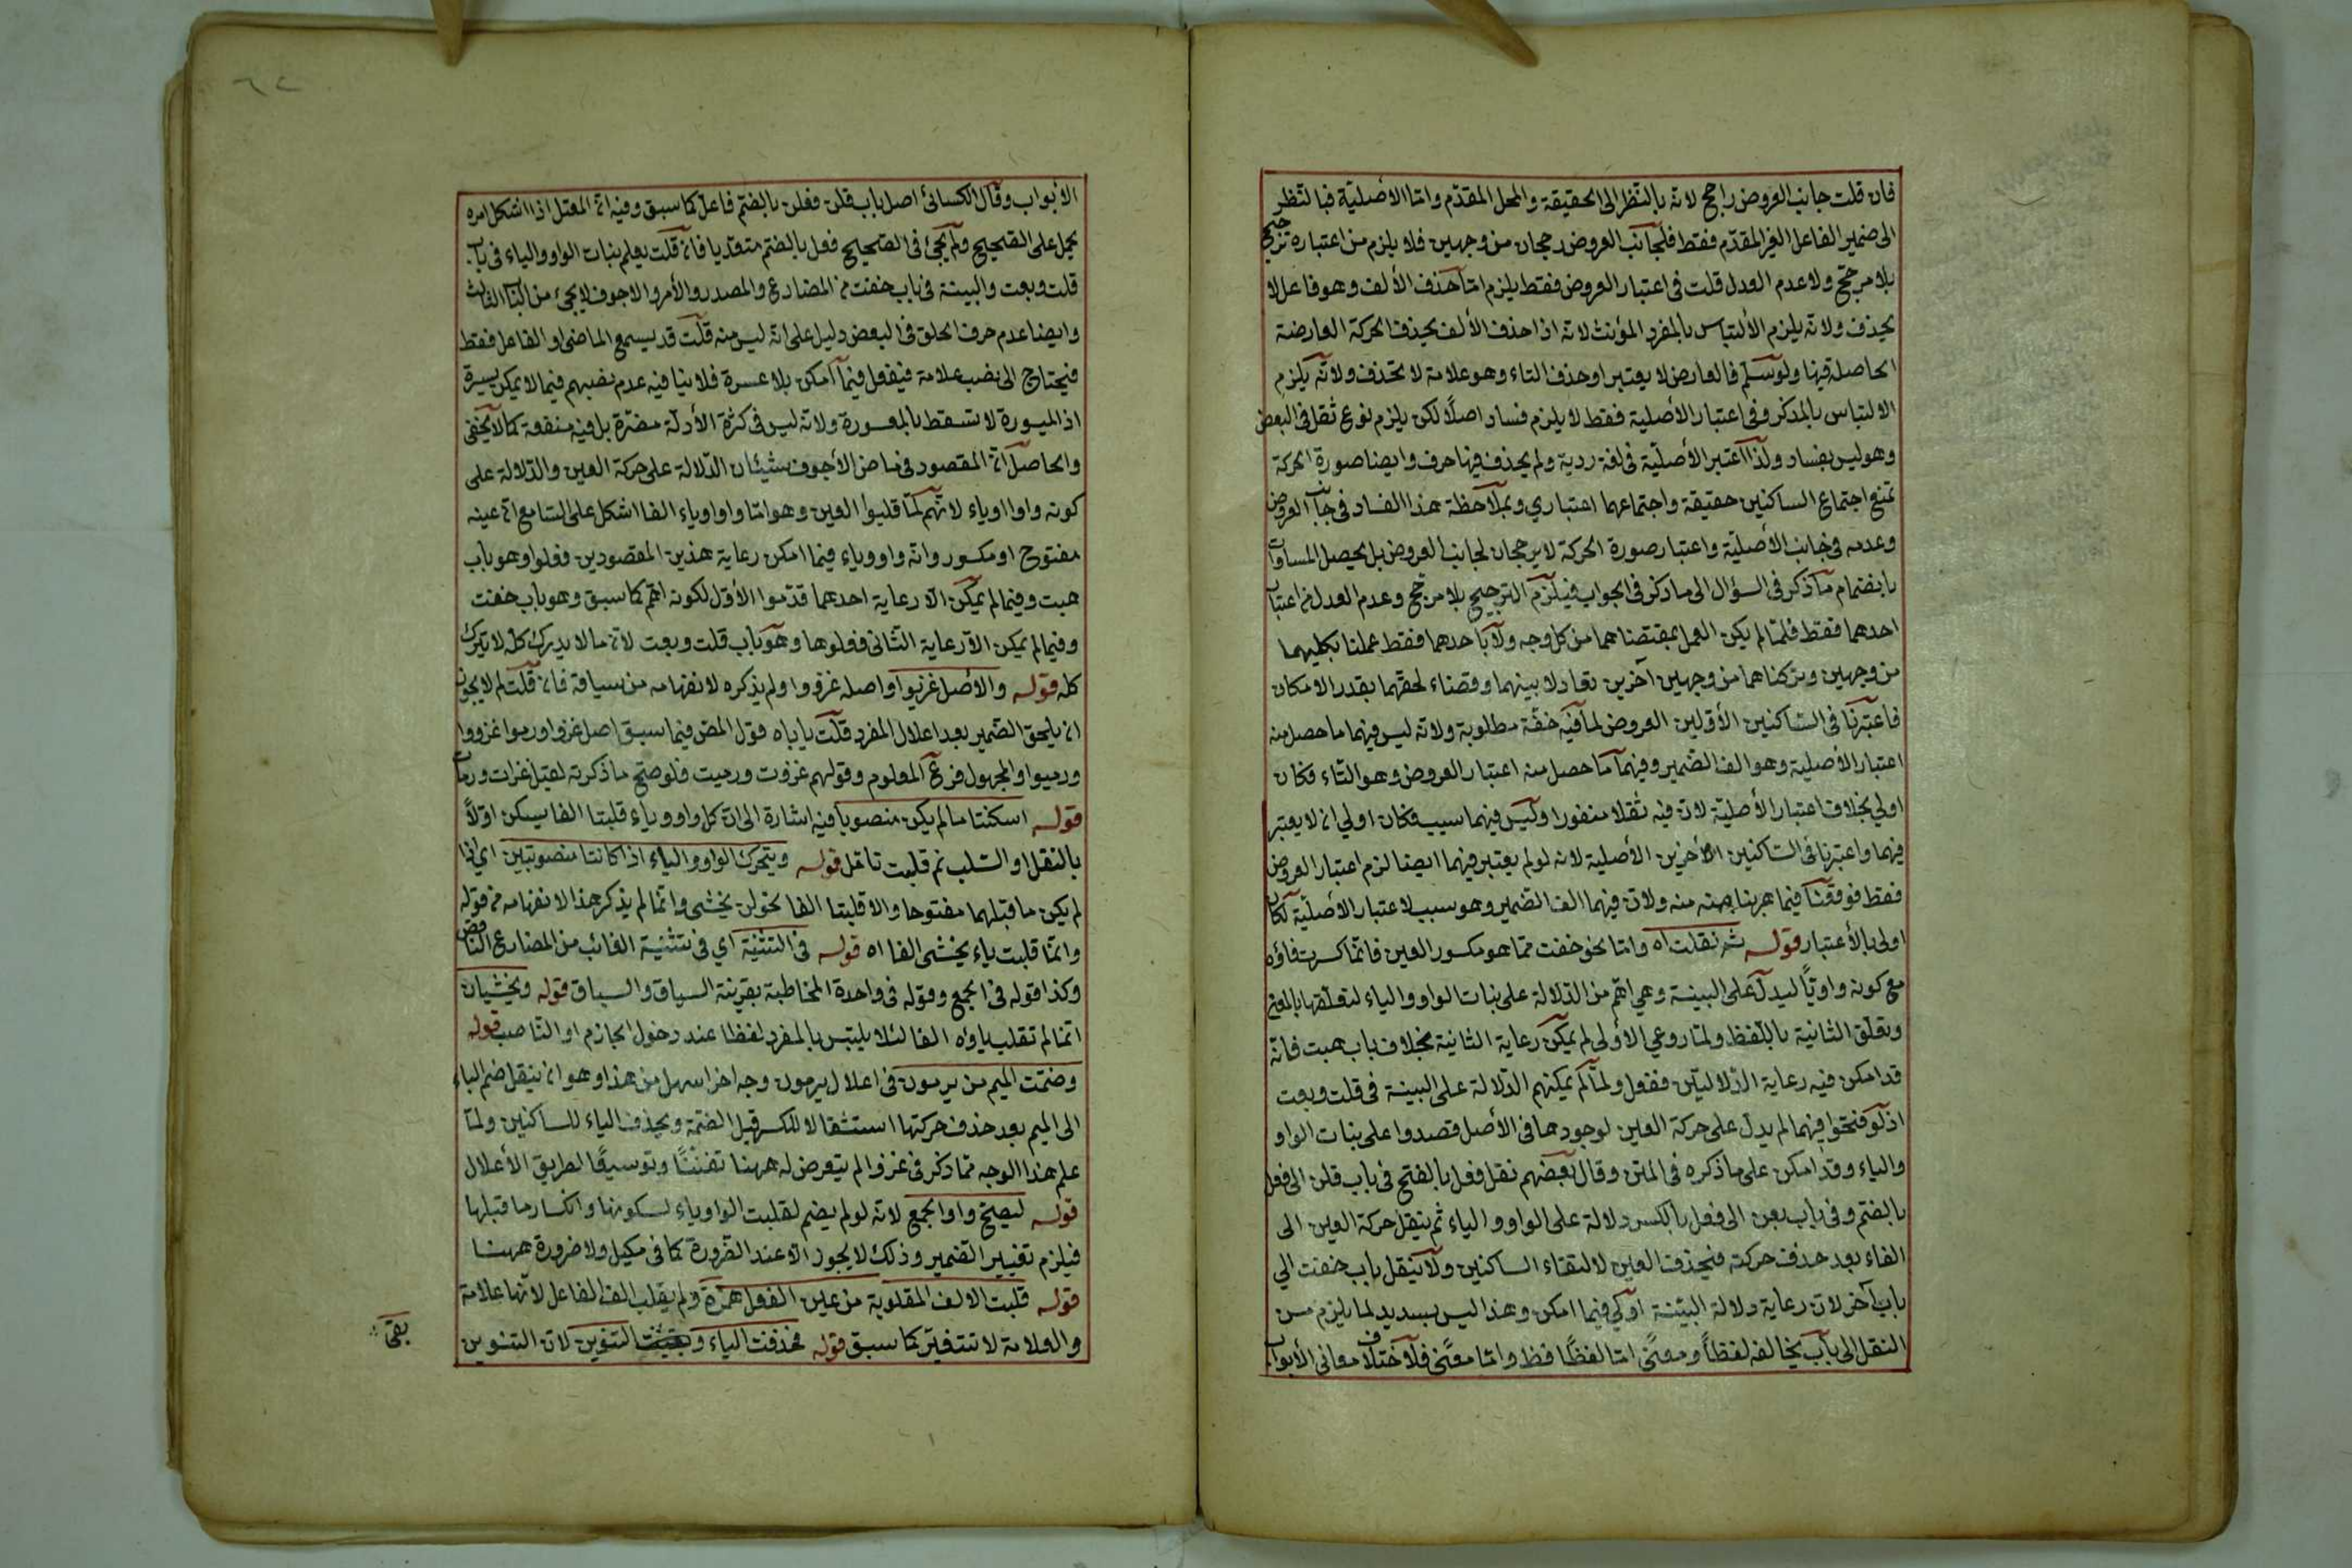 فان قلت جانب العروض راجح لانه بالنظر الى الحقيقة والمحل المقدم واما الأصلية فبالنظر
الى ضمير الفاعل الغير المقدم فقط فلجانب العروض رجحان من وجهين فلا يلزم من اعتباره ترجيح
بلا مرجح ولا عدم العدل قلت فى اعتبار العروض فقط يلزم اما حذف الألف وهو فاعل لا
يحذف ولانه يلزم الألتباس بالمفرد المؤنث لانه اذا حذف الألف يحذف الحركة العارضة
الحاصلة فيها ولو سلم فالعارض لا يعتبر او حذف التاء وهو علامة لا تحذف ولانه يلزم
الالتباس بالمذكر وفى اعتبار الأصلية فقط لا يلزم فساد اصلا لكن يلزم نوع ثقل فى البعض
وهو ليس بفساد ولذا اعتبر الأصلية فى لغة ردية ولم يحذف فيها حرف وايضا صورة الحركة
تمنع اجتماع الساكنين حقيقة واجتماعهما اعتباري وبملاحظة هذا الفساد فى جانب العروض
وعدمه فى جانب الأصلية واعتبار صورة الحركة لا رجحان لجانب العروض بل يحصل المساواة
بانضمام ما ذكر فى السؤال الى ما ذكر فى الجواب فيلزم الترجيح بلا مرجح وعدم العدل من اعتبار
احدهما فقط فلما لم يكن العمل بمقتضاهما من كل وجه ولا باحدهما فقط عملنا بكليهما
من وجهين وتركناهما من وجهين آخرين تعادلا بينهما وقضاء لحقهما بقدر الامكان
فاعتبرنا فى الساكنين الأولين العروض لما فيه خفة مطلوبة ولانه ليس فيهما ما حصل منه
اعتبار الأصلية وهو الف الضمير وفيهما ما حصل منه اعتبار العروض وهو التاء فكان
اولي بخلاف اعتبار الأصلية لان فيه ثقلا منفورا وليس فيهما سببه فكان اولي ان لا يعتبر
فيهما واعتبرنا فى الساكنين الأخرين الأصلية لانه لو لم يعتبر فيهما ايضا لزم اعتبار العروض
فقط فوقعنا فيما هربنا منه ولان فيهما الف الضمير وهو سبب لاعتبار الأصلية لكان
اولى بالأعتبار قوله ثم نقلت اه واما نحو خفت مما هو مكسور العين فانما كسرت فاؤه
مع كونه واويًا ليدل على البينة وهي اهم من الدلالة على بنات الواو والياء لتعلقها بالمعنى
وتعلق الثانية باللفظ ولما روعي الأولى لم يمكن رعاية الثانية بخلاف باب هبت فانه
قد امكن فيه رعاية الدلالتين ففعل ولما لم يمكنهم الدلالة على البينة فى قلت وبعت
اذ لو فتحوا فيهما لم يدل على حركة العين لوجودها فى الأصل قصدوا على بنات الواو
والياء وقد امكن على ما ذكره فى المتن وقال بعضهم نقل فعل بالفتح فى باب قلن الى فعل
بالضم وفى باب بعن الى فعل بالكسر دلالة على الواو والياء ثم ينقل حركة العين الى
الفاء بعد حذف حركته فيحذف العين لالتقاء الساكنين ولا ينقل باب خفت الي
باب آخر لان رعاية دلالة البينة اولي فيما امكن وهذا ليس بسديد لما يلزم من
النقل الى باب يخالفه لفظاً ومعنًى اما لفظًا فظ واما معنًى فلاختلاف معانى الأبواب
الأبواب وقال الكسائى اصل باب قلن فعلن بالضم فاعل كما سبق وفيه ان المعتل اذا اشكل امره
يحمل على الصحيح ولم يجئ فى الصحيح فعل بالضم متعديا فان قلت يعلم بنات الواو والياء فى باب
قلت وبعت والبينة فى باب خفت من المضارع والمصدر والأمر والاجوف لا يجئ من الباب الثالث
وايضا عدم حرف الحلق فى البعض دليل على انه ليس منه قلت قد يسمع الماضى او الفاعل فقط
فيحتاج الى نصب علامة فيفعل فيما امكن بلا عسرة فلا ينافيه عدم نصبهم فيما لا يمكن يسيرة
اذ الميسورة لا تسقط بالمعسورة ولانه ليس فى كثرة الأدلة مضرة بل فيه منفعة كما لا يخفى
والحاصل ان المقصود فى ماض الأجوف شيئان الدلالة على حركة العين والدلالة على
كونه واوا او ياء لانهم لما قلبوا العين وهو اما واو او ياء الفا اشكل على السامع ان عينه
مفتوح او مكسور وانه واو وياء فيما امكن رعاية هذين المقصودين فعلوا وهو باب
هبت وفيما لم يمكن الا رعاية احدهما قدموا الأول لكونه اهم كما سبق وهو باب خفت
وفيما لم يمكن الا رعاية الثانى فعلوها وهو باب قلت وبعت لان ما لا يدرك كله لا يترك
كله قوله والأصل غزيوا واصله غزووا ولم يذكره لانفهامه من سياقه فان قلت لم لا يجوز
ان يلحق الضمير بعد اعلال المفرد قلت يأباه قول المص فيما سبق اصل غزوا ورموا غزووا
ورميوا والمجهول فرع المعلوم وقولهم غزوت ورميت فلو صح ما ذكرته لقيل غزات ورمات
قوله اسكنتا ما لم يكن منصوبا فيه اشارة الى ان كل واو وياء قلبتا الفا يسكن اولاً
بالنقل او السلب ثم قلبت تأمل قوله ويتحرك الواو والياء اذا كانتا منصوبتين اي اذا
لم يكن ما قبلهما مفتوحا والا قلبتا الفا نحو لن يخشى وانما لم يذكر هذا لانفهامه من قوله
وانما قلبت ياء يخشى الفا اه قوله فى التثنية اي فى تثنية الغائب من المضارع الناقص
وكذا قوله فى الجمع وقوله فى واحدة المخاطبة بقرينة السياق والسباق قوله ويخشيان
انما لم تقلب ياؤه الفا لئلا يلتبس بالمفرد لفظا عند دخول الجازم او الناصب قوله
وضمت الميم من يرمون فى اعلال يرمون وجه اخر اسهل من هذا وهو ان ينقل ضم الياء
الى الميم بعد حذف حركتها استثقالا للكسر قبل الضمة ويحذف الياء للساكنين ولما
علم هذا الوجه مما ذكر فى غزوا لم يتعرض له ههنا تفننًا وتوسيعًا لطريق الأعلال
قوله ليصح واو الجمع لانه لو لم يضم لقلبت الواو ياء لسكونها وانكسار ما قبلها
فيلزم تغيير الضمير وذلك لا يجوز الا عند الضرورة كما فى مكيل ولا ضرورة ههنا
قوله قلبت الالف المقلوبة من عين الفعل همزة ولم يقلب الف الفاعل لانها علامة
والعلامة لا تتغير كما سبق قوله فحذفت الياء وبقيت التنوين لان التنوين
بقى